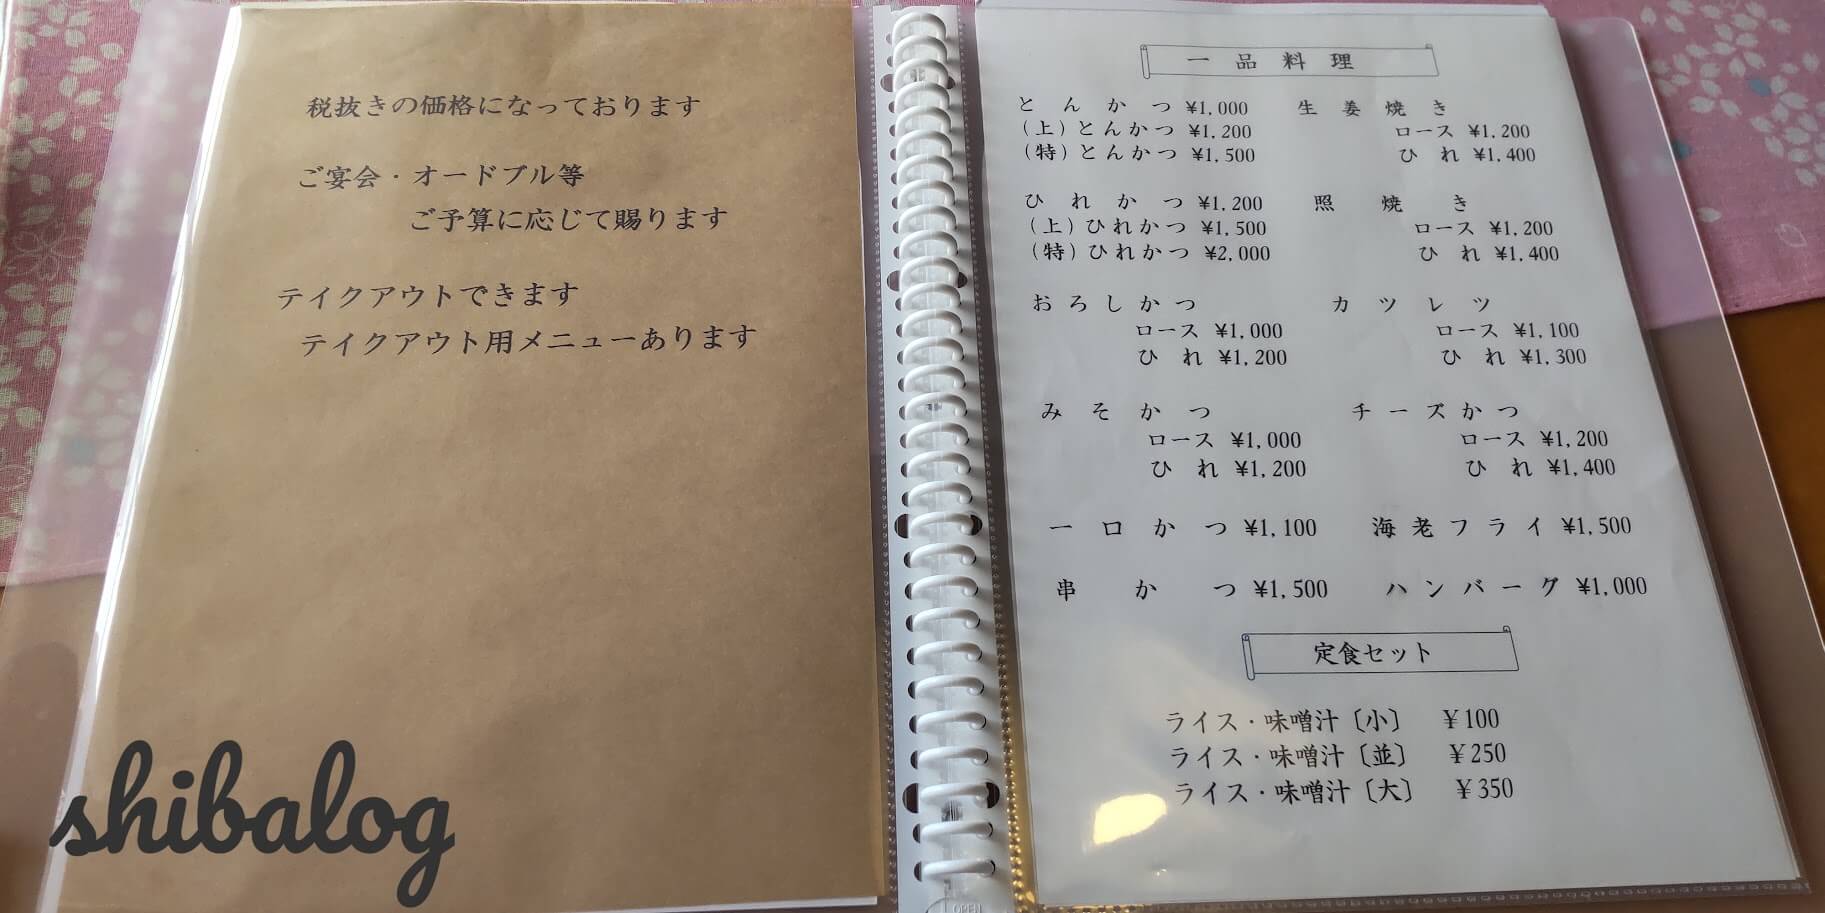 税抜きの価格になっております
ご宴会・オードブル等
ご予算に応じて賜ります
テイクアウトできます
テイクアウト用メニューあります
shibalog
一品料理
とんかつ ¥1,000
(上)とんかつ ¥1,200
(特)とんかつ ¥1,500
ひれかつ ¥1,200
(上)ひれかつ ¥1,500
(特)ひれかつ ¥2,000
おろしかつ
ロース ¥1,000
ひれ ¥1,200
みそかつ
ロース ¥1,000
ひれ ¥1,200
一口かつ ¥1,100
串かつ ¥1,500
生姜焼き
ロース ¥1,200
ひれ ¥1,400
照焼き
ロース ¥1,200
ひれ ¥1,400
カツレツ
ロース ¥1,100
ひれ ¥1,300
チーズかつ
ロース ¥1,200
ひれ ¥1,400
海老フライ ¥1,500
ハンバーグ ¥1,000
定食セット
ライス・味噌汁〔小〕 ¥100
ライス・味噌汁〔並〕 ¥250
ライス・味噌汁〔大〕 ¥350
OPEN